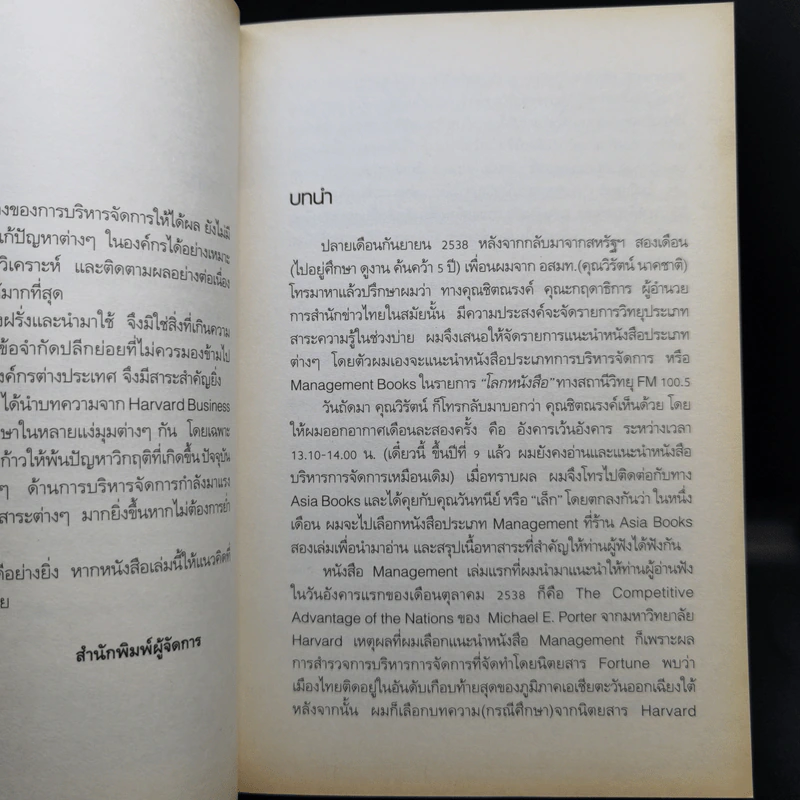 ของการบริหารจัดการให้ได้ผล ยังไม่มี
แก้ปัญหาต่างๆ ในองค์กรได้อย่างเหมาะ
วิเคราะห์ และติดตามผลอย่างต่อเนื่อง
มากที่สุด
ฝรั่งและนำมาใช้ จึงมิใช่สิ่งที่เกินความ
ข้อจำกัดปลีกย่อยที่ไม่ควรมองข้ามไป
งค์กรต่างประเทศ จึงมีสาระสำคัญยิ่ง
ได้นำบทความจาก Harvard Business
ษาในหลายแง่มุมต่างๆ กัน โดยเฉพาะ
ก้าวให้พ้นปัญหาวิกฤติที่เกิดขึ้น ปัจจุบัน
ๆ ด้านการบริหารจัดการกำลังมาแรง
สาระต่างๆ มากยิ่งขึ้นหากไม่ต้องการย่ำ
อย่างยิ่ง หากหนังสือเล่มนี้ให้แนวคิดที่
ย
สำนักพิมพ์ผู้จัดการ
บทนำ
ปลายเดือนกันยายน 2538 หลังจากกลับมาจากสหรัฐฯ สองเดือน
(ไปอยู่ศึกษา ดูงาน ค้นคว้า 5 ปี) เพื่อนผมจาก อสมท.(คุณวิรัตน์ นาคชาติ)
โทรมาหาแล้วปรึกษาผมว่า ทางคุณชิตณรงค์ คุณะกฤดาธิการ ผู้อำนวย
การสำนักข่าวไทยในสมัยนั้น มีความประสงค์จะจัดรายการวิทยุประเภท
สาระความรู้ในช่วงบ่าย ผมจึงเสนอให้จัดรายการแนะนำหนังสือประเภท
ต่างๆ โดยตัวผมเองจะแนะนำหนังสือประเภทการบริหารจัดการ หรือ
Management Books ในรายการ "โลกหนังสือ" ทางสถานีวิทยุ FM 100.5
วันถัดมา คุณวิรัตน์ ก็โทรกลับมาบอกว่า คุณชิตณรงค์เห็นด้วย โดย
ให้ผมออกอากาศเดือนละสองครั้ง คือ อังคารเว้นอังคาร ระหว่างเวลา
13.10-14.00 น. (เดี๋ยวนี้ ขึ้นปีที่ 9 แล้ว ผมยังคงอ่านและแนะนำหนังสือ
บริหารการจัดการเหมือนเดิม) เมื่อทราบผล ผมจึงโทรไปติดต่อกับทาง
Asia Books และได้คุยกับคุณวันทนีย์ หรือ "เล็ก" โดยตกลงกันว่า ในหนึ่ง
เดือน ผมจะไปเลือกหนังสือประเภท Management ที่ร้าน Asia Books
สองเล่มเพื่อนำมาอ่าน และสรุปเนื้อหาสาระที่สำคัญให้ท่านผู้ฟังได้ฟังกัน
หนังสือ Management เล่มแรกที่ผมนำมาแนะนำให้ท่านผู้อ่านฟัง
ในวันอังคารแรกของเดือนตุลาคม 2538 ก็คือ The Competitive
Advantage of the Nations ของ Michael E. Porter จากมหาวิทยาลัย
Harvard เหตุผลที่ผมเลือกแนะนำหนังสือ Management ก็เพราะผล
การสำรวจการบริหารการจัดการที่จัดทำโดยนิตยสาร Fortune พบว่า
เมืองไทยติดอยู่ในอันดับเกือบท้ายสุดของภูมิภาคเอเชียตะวันออกเฉียงใต้
หลังจากนั้น ผมก็เลือกบทความ(กรณีศึกษา)จากนิตยสาร Harvard